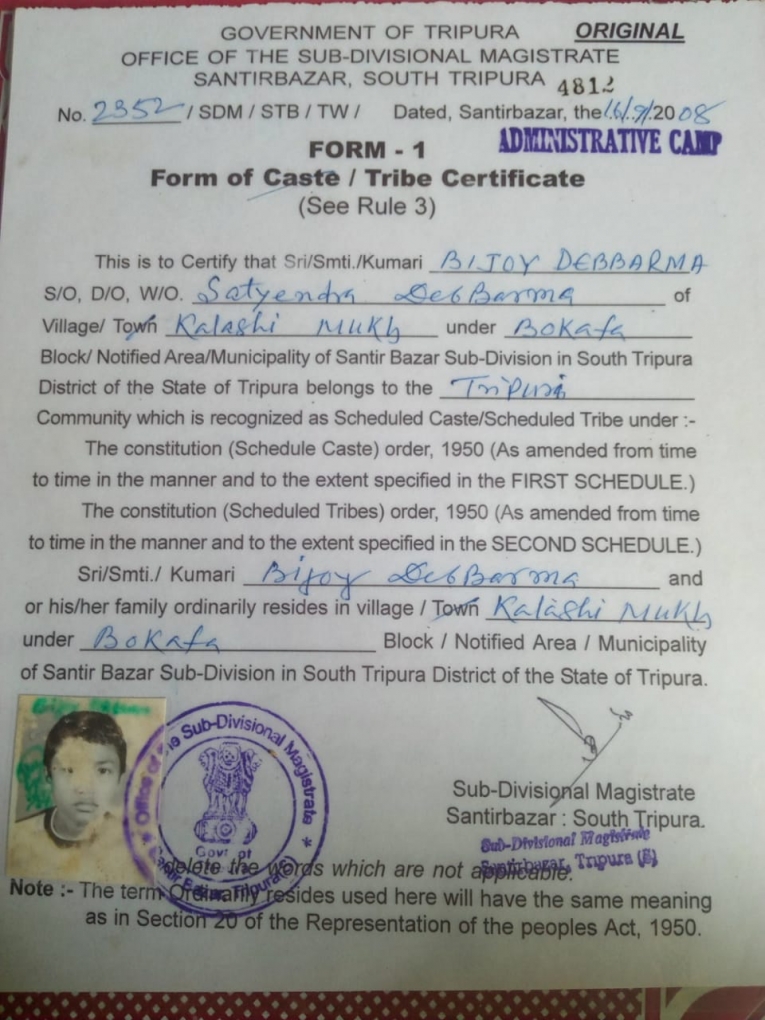 GOVERNMENT OF TRIPURA ORIGINAL
OFFICE OF THE SUB-DIVISIONAL MAGISTRATE
SANTIRBAZAR, SOUTH TRIPURA 4812
No. 2352 / SDM / STB / TW / Dated, Santirbazar, the 16/9/2008
ADMINISTRATIVE CAMP
FORM - 1
Form of Caste / Tribe Certificate
(See Rule 3)
This is to Certify that Sri/Smti./Kumari BIJOY DEBBARMA
S/O, D/O, W/O. Satyendra DebBarma of
Village/ Town Kalashi Mukh under Bokafa
Block/ Notified Area/Municipality of Santir Bazar Sub-Division in South Tripura
District of the State of Tripura belongs to the Tripuri
Community which is recognized as Scheduled Caste/Scheduled Tribe under :-
The constitution (Schedule Caste) order, 1950 (As amended from time
to time in the manner and to the extent specified in the FIRST SCHEDULE.)
The constitution (Scheduled Tribes) order, 1950 (As amended from time
to time in the manner and to the extent specified in the SECOND SCHEDULE.)
Sri/Smti./ Kumari Bijoy DebBarma and
or his/her family ordinarily resides in village / Town Kalashi Mukh
under Bokafa Block / Notified Area / Municipality
of Santir Bazar Sub-Division in South Tripura District of the State of Tripura.
Office of the Sub-Divisional Magistrate
Govt of
Santir Bazar, Tripura(S)
Sub-Divisional Magistrate
Santirbazar : South Tripura.
Sub-Divisional Magistrate
Santirbazar, Tripura (S)
delete the words which are not applicable.
Note :- The term Ordinarily resides used here will have the same meaning
as in Section 20 of the Representation of the peoples Act, 1950.